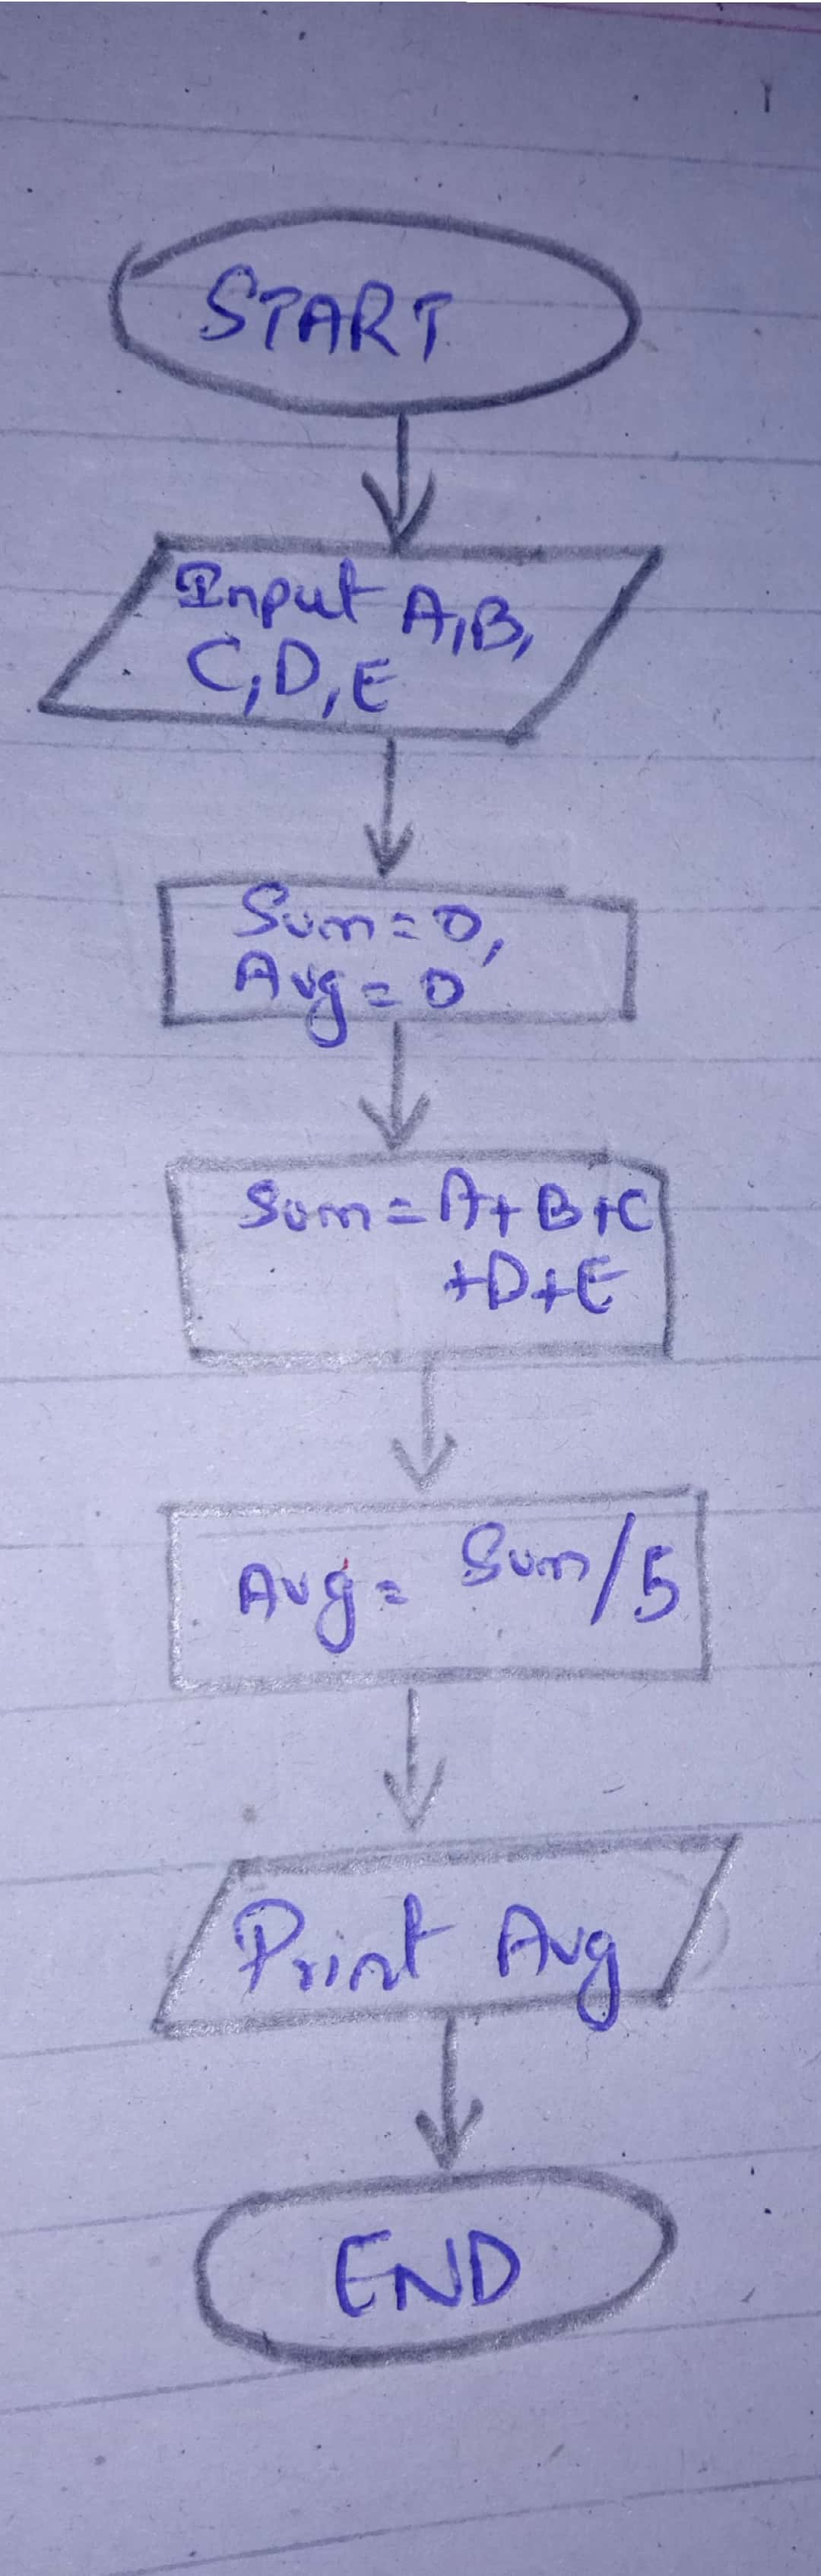 START
Input A,B,
C,D,E
Sum=0,
Avg=0
Sum=A+B+C
+D+E
Avg= Sum/5
Print Avg
END